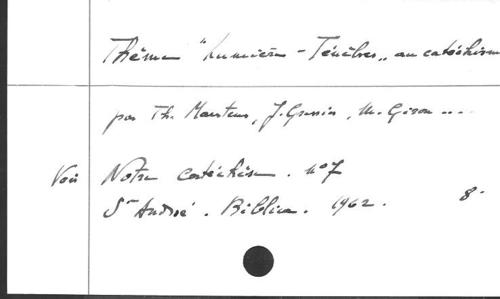 Thème "Lumière - Ténèbres" au catéchisme
par Th. Maertens, J. Grassin, M. Gison ...
Voir Notre catéchèse . n° 7
St André . Biblica . 1962 . 8 -